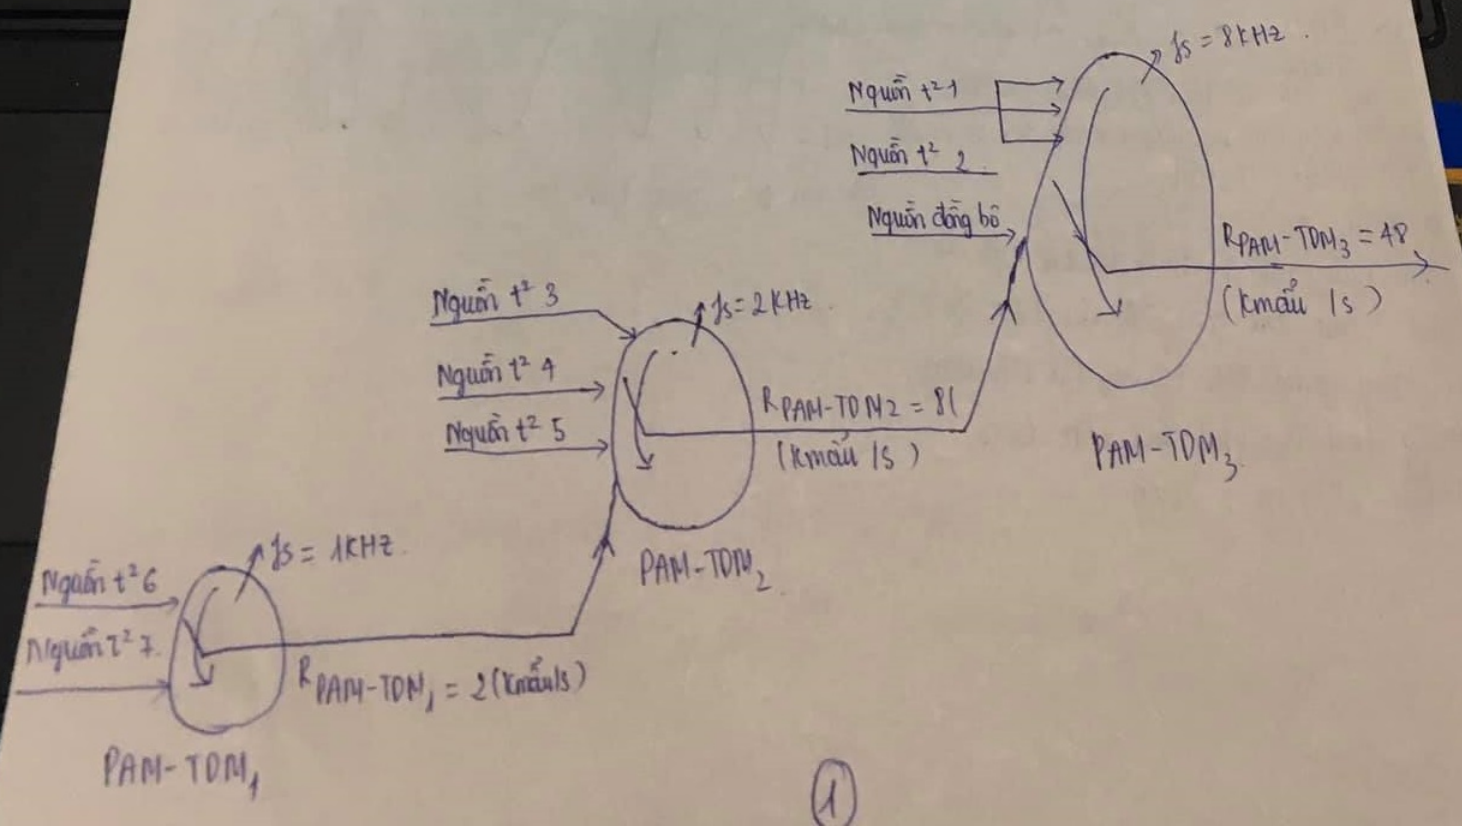 fs = 8KHz.
Nguồn t² 1
Nguồn t² 2
Nguồn đồng bộ
RPAM-TDM₃ = 48
(Kmẫu/s)
PAM-TDM₃
Nguồn t² 3
fs = 2KHz
Nguồn t² 4
Nguồn t² 5
RPAM-TDM2 = 8(
(Kmẫu/s)
PAM-TDM₂
fs = 1KHz.
Nguồn t² 6
Nguồn t² 7
RPAM-TDM₁ = 2(Kmẫu/s)
PAM-TDM₁
1